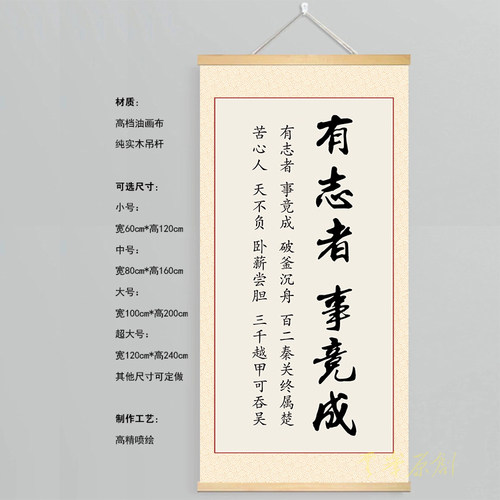 材质：
高档油画布
纯实木吊杆
可选尺寸：
小号：
宽60cm*高120cm
中号：
宽80cm*高160cm
大号：
宽100cm*高200cm
超大号：
宽120cm*高240cm
其他尺寸可定做
制作工艺：
高精喷绘
有志者 事竟成
有志者 事竟成 破釜沉舟 百二秦关终属楚
苦心人 天不负 卧薪尝胆 三千越甲可吞吴